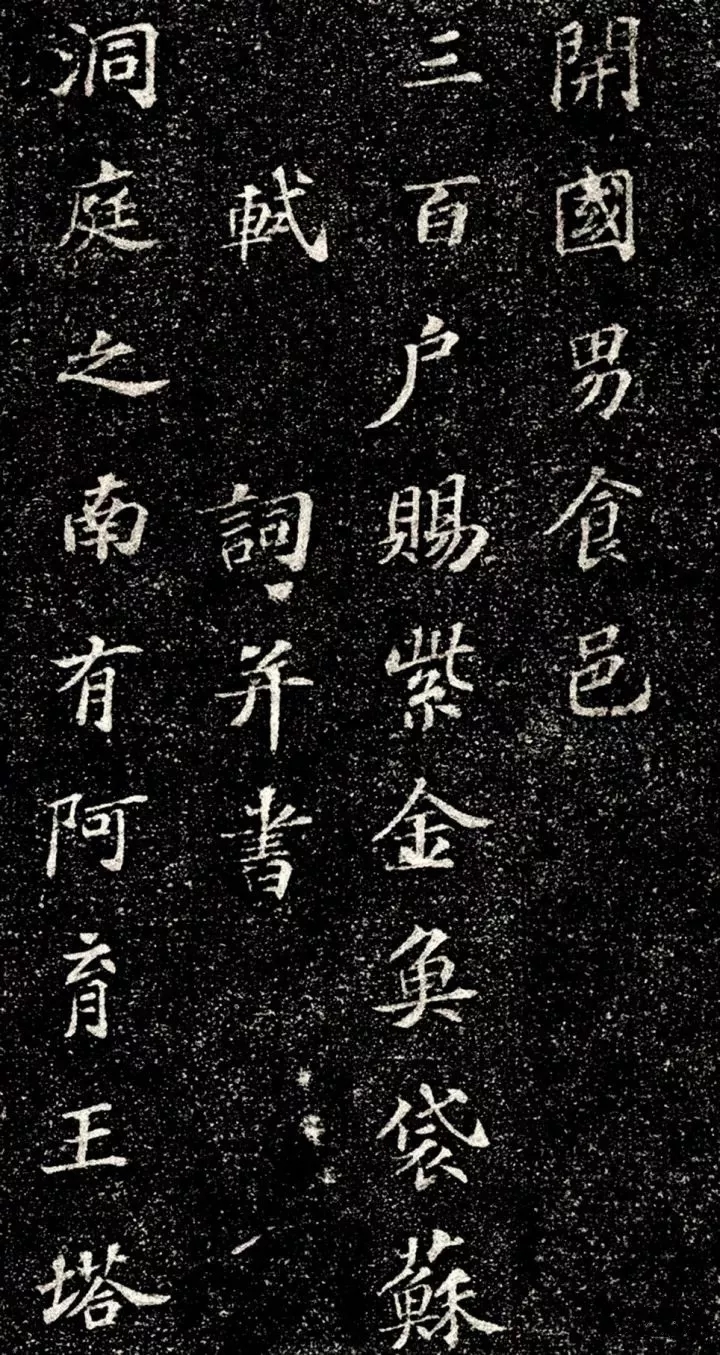 開國男食邑
三百户賜紫金魚袋蘇
軾詞并書
洞庭之南有阿育王塔